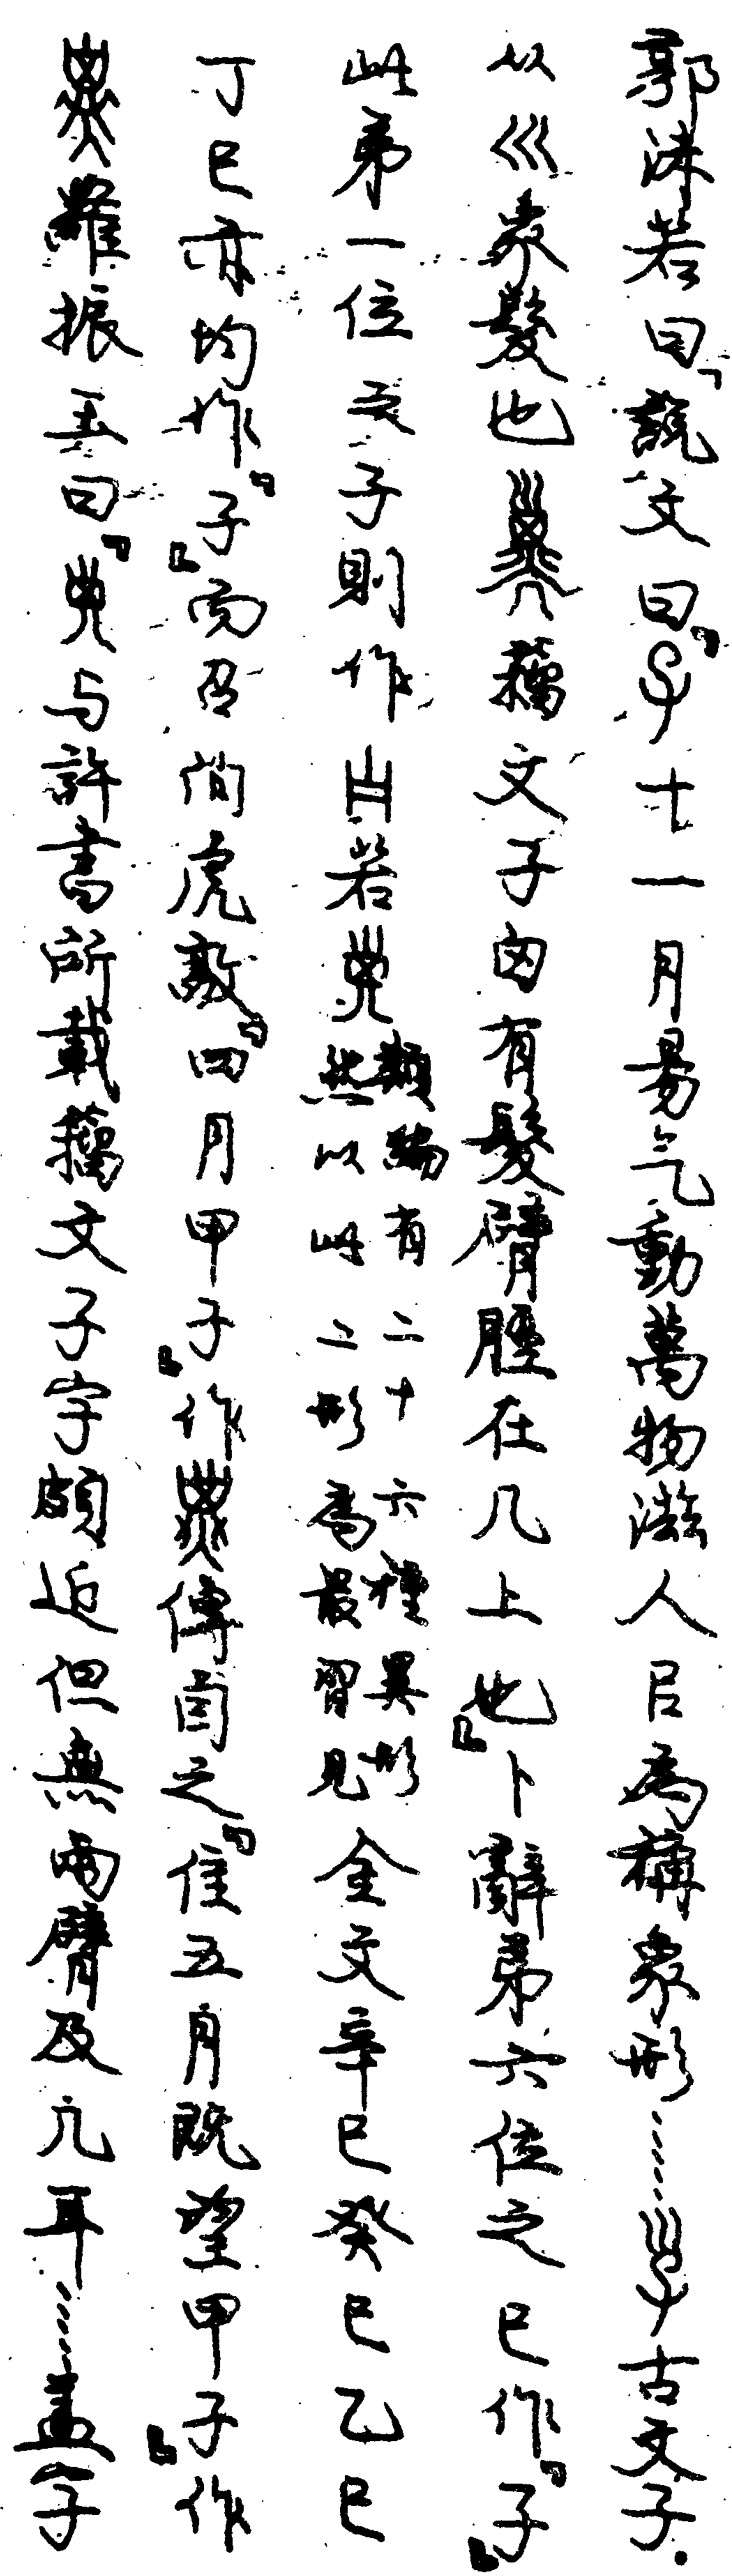 郭沫若曰「說文曰『子十一月昜气動萬物滋人㠯為稱象形……古文子.
从巛象髮也籒文子囟有髮臂脛在几上也』卜辭第六位之巳作『子』
此第一位之子則作若類編有二十六種異形然以此二形為最習見金文辛巳癸巳乙巳
丁巳亦均作『子』而召伯虎敦『四月甲子』作傳卣之『隹五月既望甲子』作
羅振玉曰『与許書所載籒文子字頗近但無兩臂及几耳……蓋字